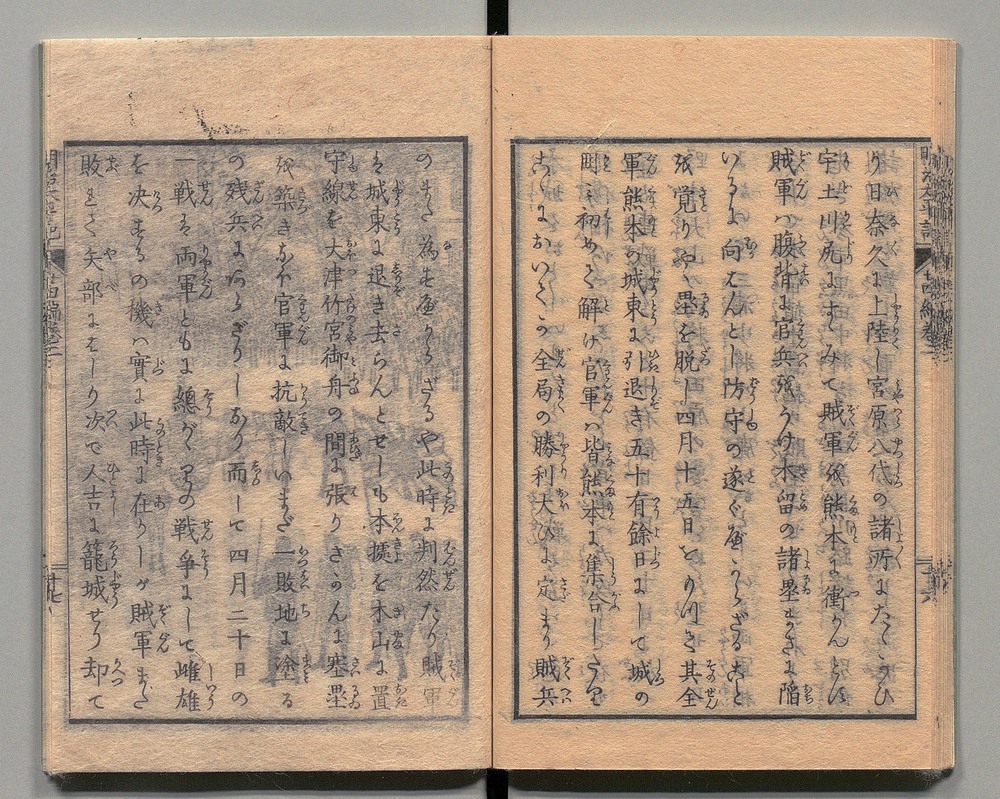 り日奈久に上陸し宮原八代の諸所にたゝかひ
宇土川尻にすゝみて賊軍を熊本に衝かんとす
賊軍ハ腹背に官兵を引うけ木留の諸塁もまさに陥
いるに向はんとし防守の遂ぐべからざること
を覚りや塁を脱し四月十五日をもつて其全
軍熊本の城東に引退き五十有餘日にして城の
囲ミ初めて解け官軍ハ皆熊本に集合したり
こゝにおいてか全局の勝利大ひに定まり賊兵
のまた為すべからざるや此時に判然たり賊軍
ハ城東に退き去らんとせしも本據を木山に置
守線を大津竹宮御舟の間に張りさかんに塞塁
を築きなほ官軍に抗敵しいまだ一敗地に塗る
の残兵にあらざりしなり而して四月二十日の
一戦ハ両軍ともに總がゝりの戦争にして雌雄
を決するの機ハ實に此時に在りしが賊軍また
敗れて矢部にはしり次で人吉に籠城せり却て